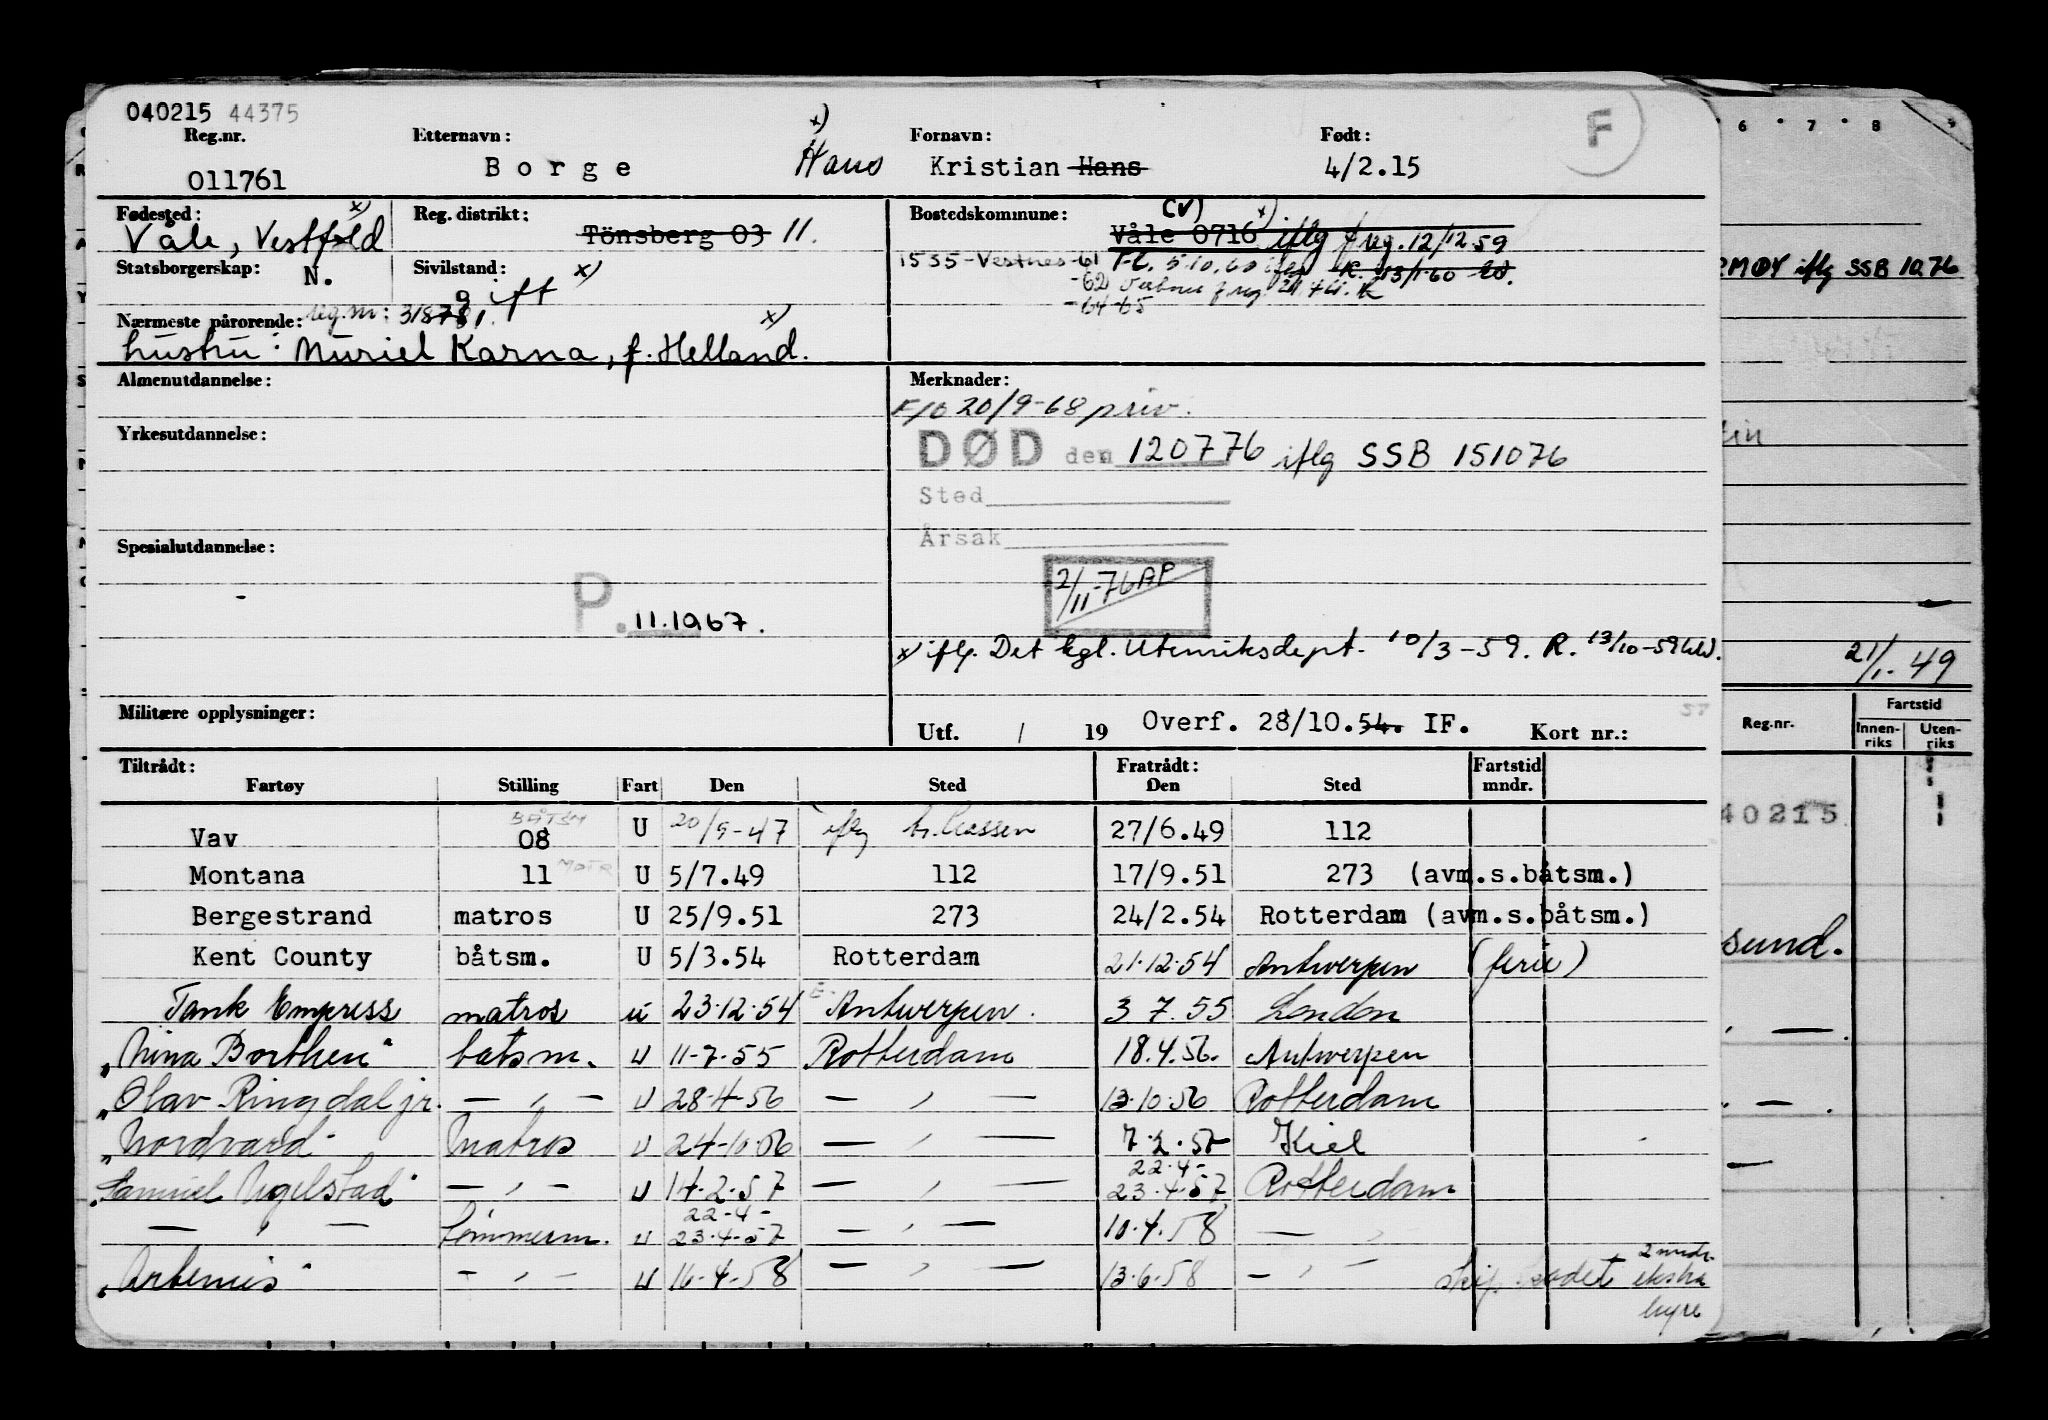 040215 44375
Reg.nr. Etternavn: x) Fornavn: Født: F
011761 Borge Hans Kristian Hans 4/2.15
Fødested: x) Reg. distrikt: Bostedskommune: (V) x)
Våle, Vestfold Tönsberg 03 11. Våle 0716 iflg f reg. 12/12 59
Statsborgerskap: N. Sivilstand: x) gift
1535-Vestnes-61 T.C. 5.10.60 K. 13/1-60
-62
-64-65
Nærmeste pårørende: reg.nr: 318781. x)
hustru: Muriel Karna, f. Helland.
Almenutdannelse: Merknader:
F/O 20/9-68 priv.
Yrkesutdannelse:
DØD den 120776 iflg SSB 151076
Sted
Årsak
Spesialutdannelse:
2/11-76 AP
P. 11.1967.
x) iflg. Det kgl. Utenriksdept. 10/3-59. R. 13/10-59
Militære opplysninger: Utf. / 19 Overf. 28/10.54. IF. Kort nr.: 57
Tiltrådt: Fratrådt: Fartstid
Fartøy Stilling Fart Den Sted Den Sted mndr.
Vav 08 BÅTSM U 20/9-47 iflg 27/6.49 112
Montana 11 MOTR U 5/7.49 112 17/9.51 273 (avm.s.båtsm.)
Bergestrand matros U 25/9.51 273 24/2.54 Rotterdam (avm.s.båtsm.)
Kent County båtsm. U 5/3.54 Rotterdam 21.12.54 Antwerpen (ferie)
Tank Empress matros u 23.12.54 Antwerpen. 3 7.55 London
"Nina Borthen" båtsm. U 11-7-55 Rotterdam 18.4.56. Antwerpen
"Olav Ringdal jr. — " — U 28-4-56 — " — 13.10.56 Rotterdam
"Nordvard" Matros U 24-10-56 — " — 7.2.57 Kiel
"Samuel Ugelstad" — " — U 14-2-57 — " — 22.4- 23.4.57 Rotterdam
— " — tömmerm. U 22-4- 23.4-57 — " — 10.4.58 — "
"Artemis" — " — U 16-4-58 — " — 13.6.58 — " — 2 mndr. ekstra hyre
6 7 8 9
RMØY iflg SSB 1076
21/1.49
Fartstid
Reg.nr. Innen-riks Uten-riks
40215
sund.